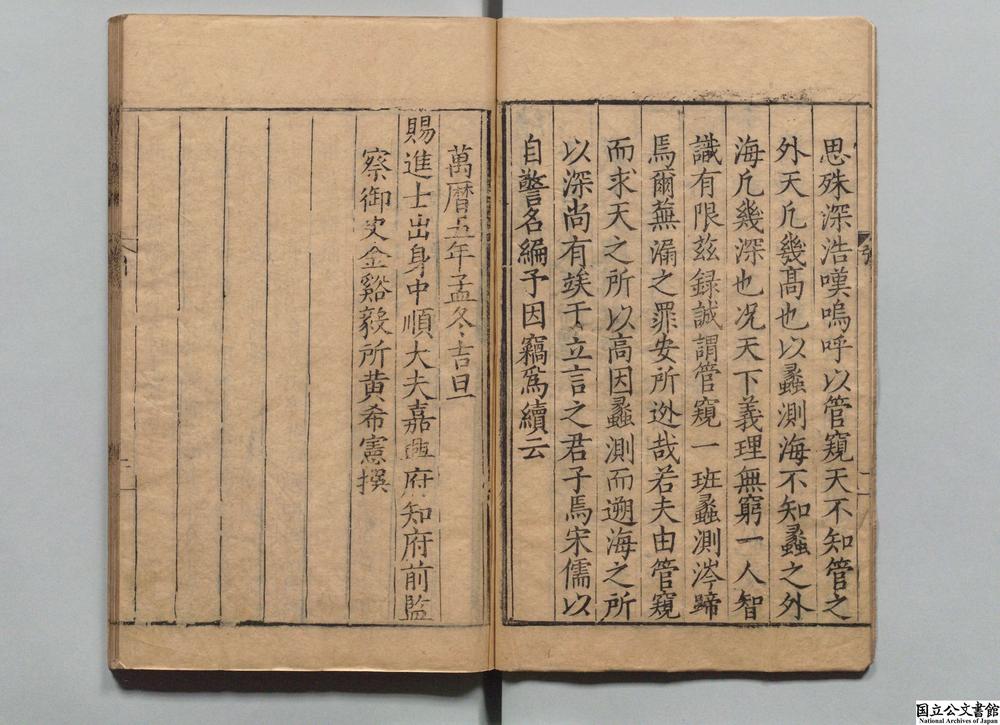 思殊深浩嘆嗚呼以管窺天不知管之
外天凢幾髙也以蠡測海不知蠡之外
海凢幾深也况天下義理無窮一人智
識有限兹録誠謂管窺一班蠡測涔蹄
焉爾蕪漏之罪安所逃哉若夫由管窺
而求天之所以高因蠡測而遡海之所
以深尚有竢于立言之君子焉宋儒以
自警名編予因竊爲續云
萬曆五年孟冬吉旦
賜進士出身中順大夫嘉興府知府前監
察御史金谿毅所黄希憲撰
国立公文書館
National Archives of Japan